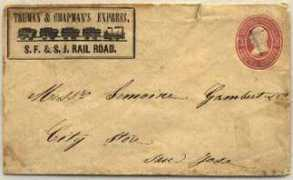 TRUMAN & CHAPMAN'S EXPRESS,
S. F. & S. J. RAIL ROAD.
Messrs Lemoine, Gambert & Co
City Store
San Jose